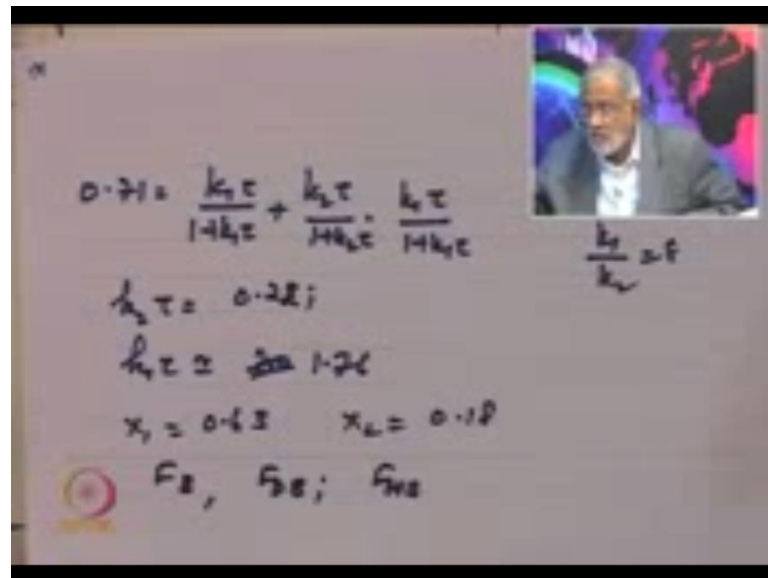 0.71 = k₁τ/(1+k₁τ) + k₂τ/(1+k₂τ) · k₁τ/(1+k₁τ)
k₁/k₂ = 8
k₂τ = 0.22;
k₁τ ≃ 1.76
x₁ = 0.63 x₂ = 0.18